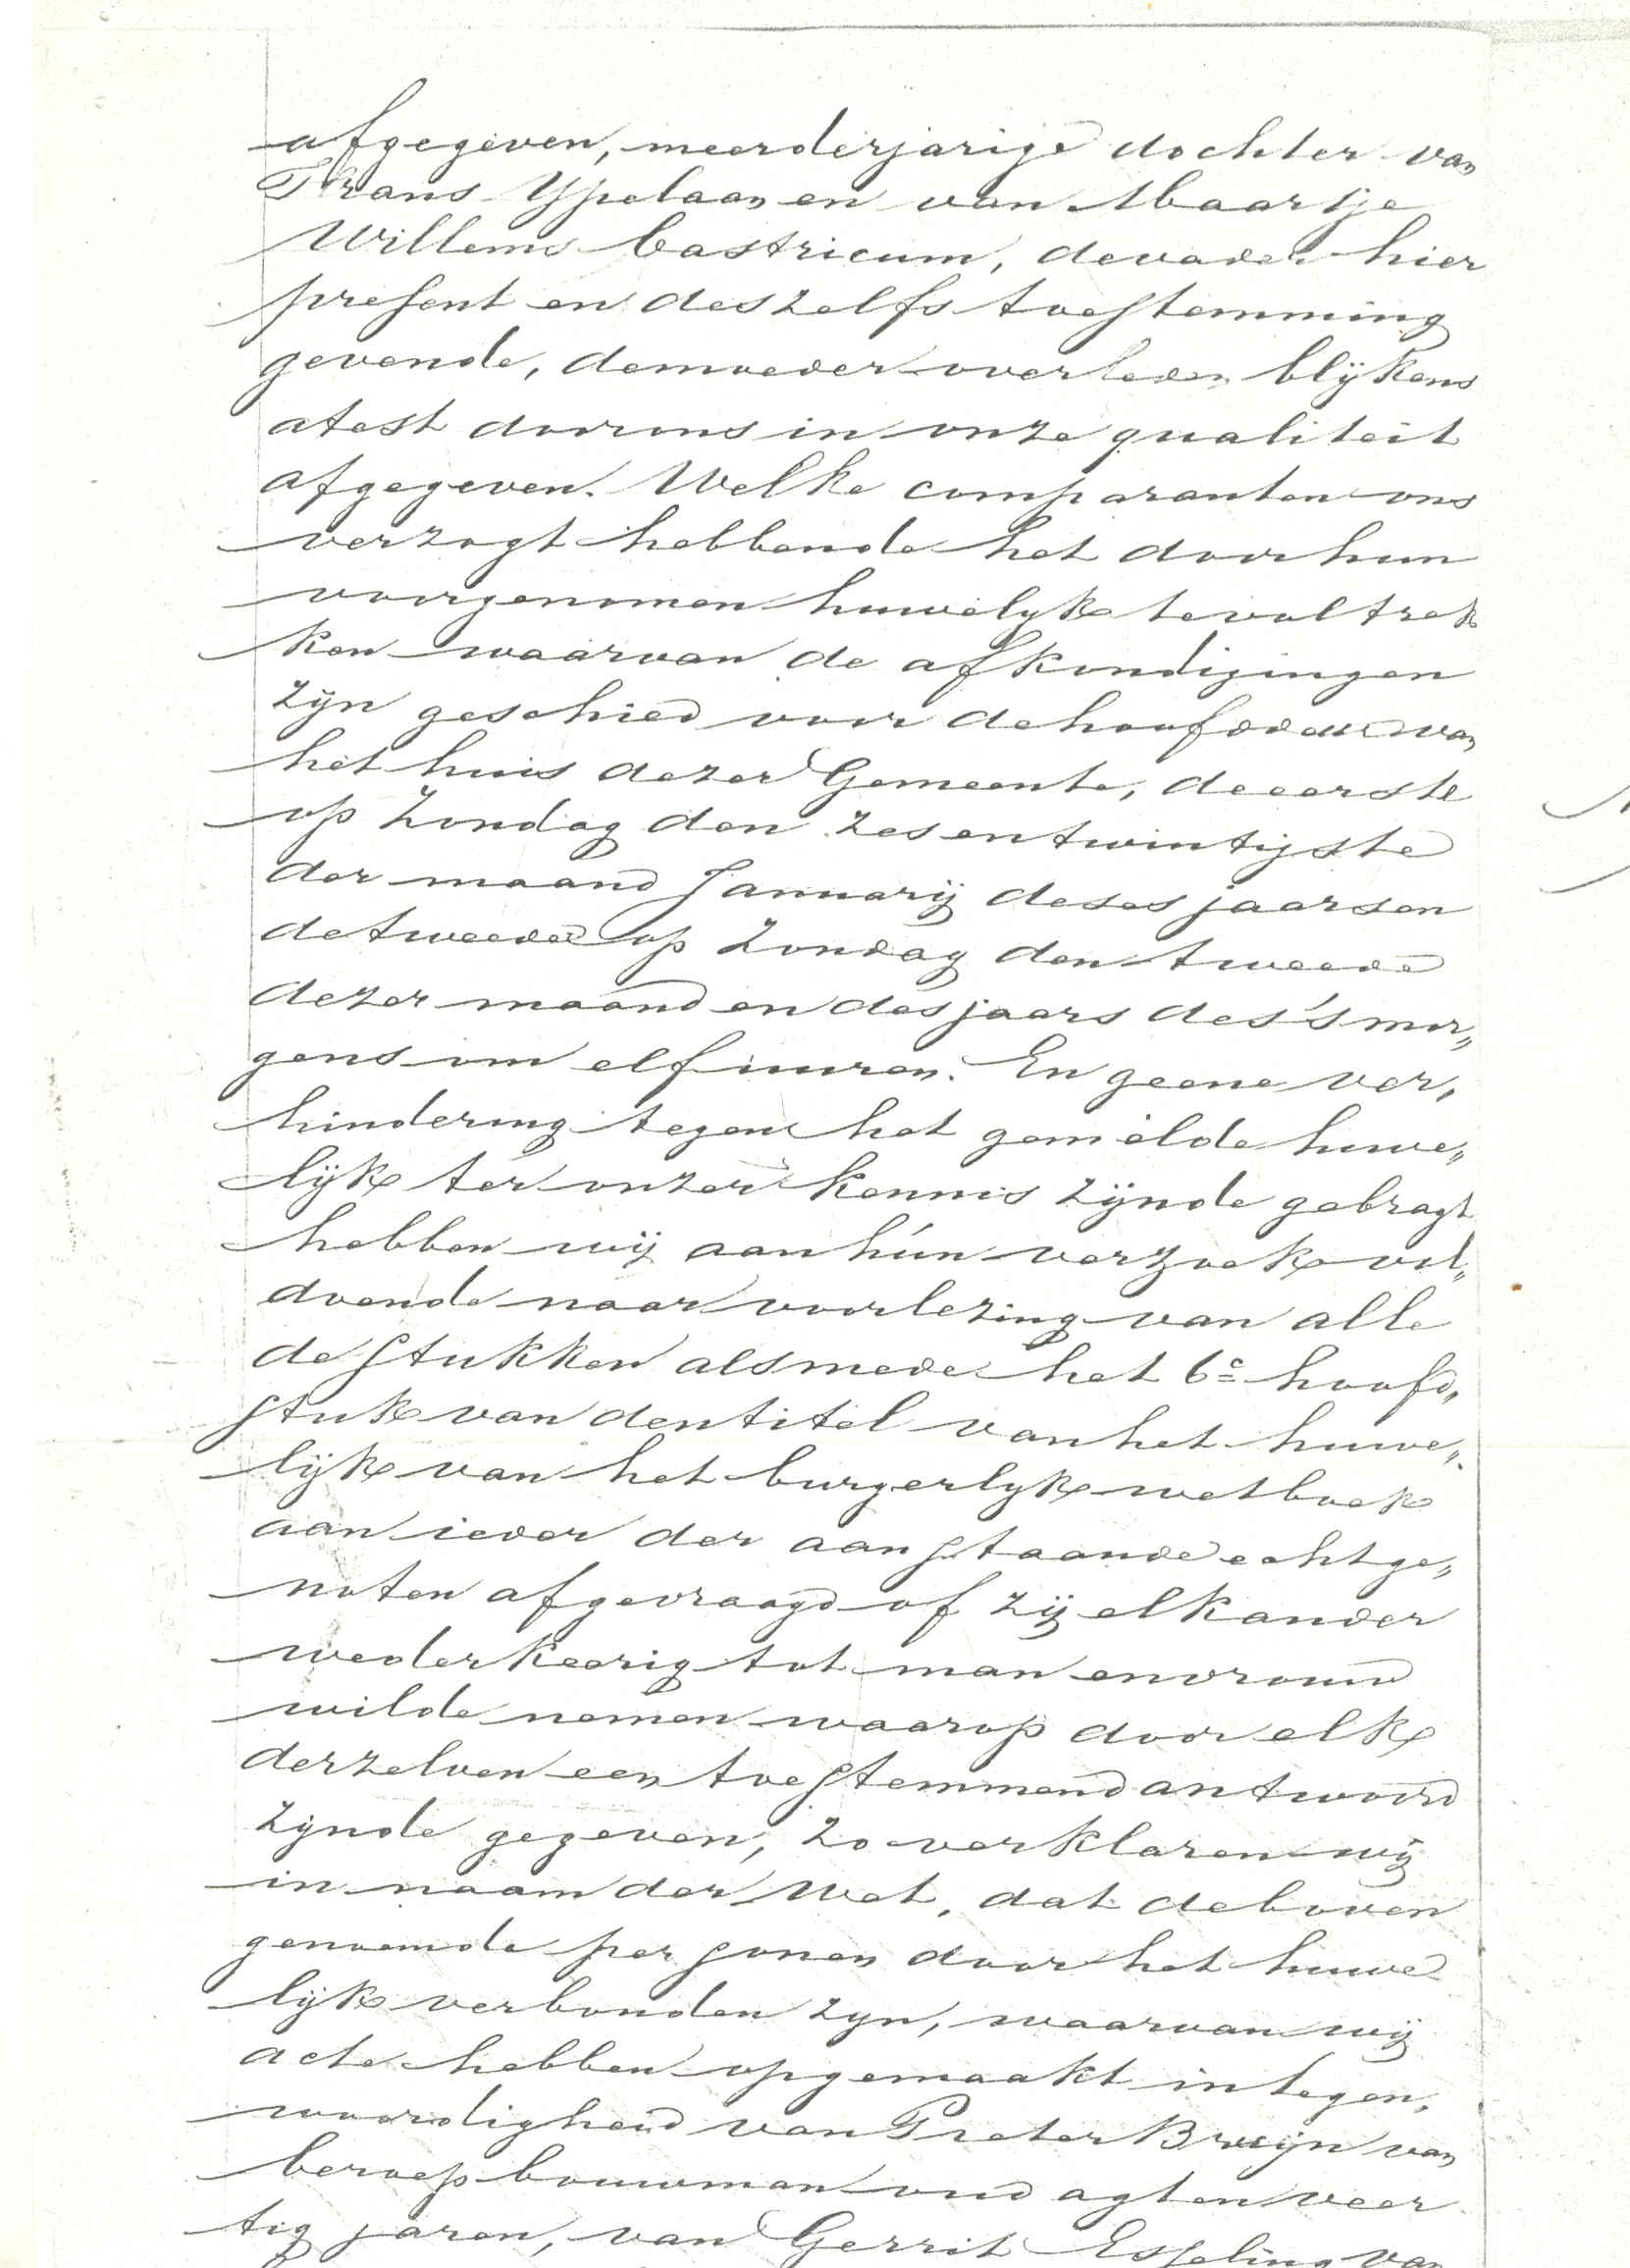 afgegeven, meerderjarige dochter van
Frans Ypelaan en van Maartje
Willems Castricum, de vader hier
present en deszelfs toestemming
gevende, de moeder overleden blijkens
atest door ons in onze qualiteit
afgegeven. Welke comparanten ons
verzogt hebbende het door hun
voorgenomen huwelyk te voltrek
ken waarvan de afkondigingen
zijn geschied voor de hoofddeur van
het huis dezer Gemeente, de eerste
op Zondag den zesentwintigste
der maand Januarij deses jaars en
de tweede op Zondag den tweede
dezer maand en des jaars des 's mor„
gens om elf uuren. En geene ver„
hindering tegen het gemelde huwe„
lijk ter onzer kennis zijnde gebragt
hebben wij aan hún verzoek vol„
doende naar voorlezing van alle
de stukken alsmede het 6e hoofd„
stuk van den titel van het huwe„
lijk van het burgerlyk wetboek
aan ieder der aanstaande echtge„
noten afgevraagd of zij elkander
wederkeerig tot man en vrouw
wilde nemen waarop door elk
derzelven een toestemmend antwoord
zynde gegeven, zo verklaren wij
in naam der Wet, dat de boven
genoemde personen door het huwe
lijk verbonden zyn, waarvan wij
acte hebben opgemaakt in tegen„
woordigheid van Pieter Bruijn van
beroep bouwman oud agt en veer
tig jaren, van Gerrit Esseling van